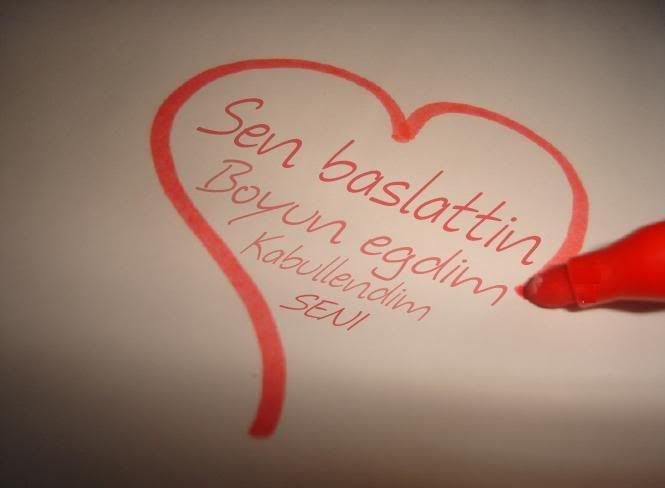 Sen baslattin
Boyun egdim
Kabullendim
SENI